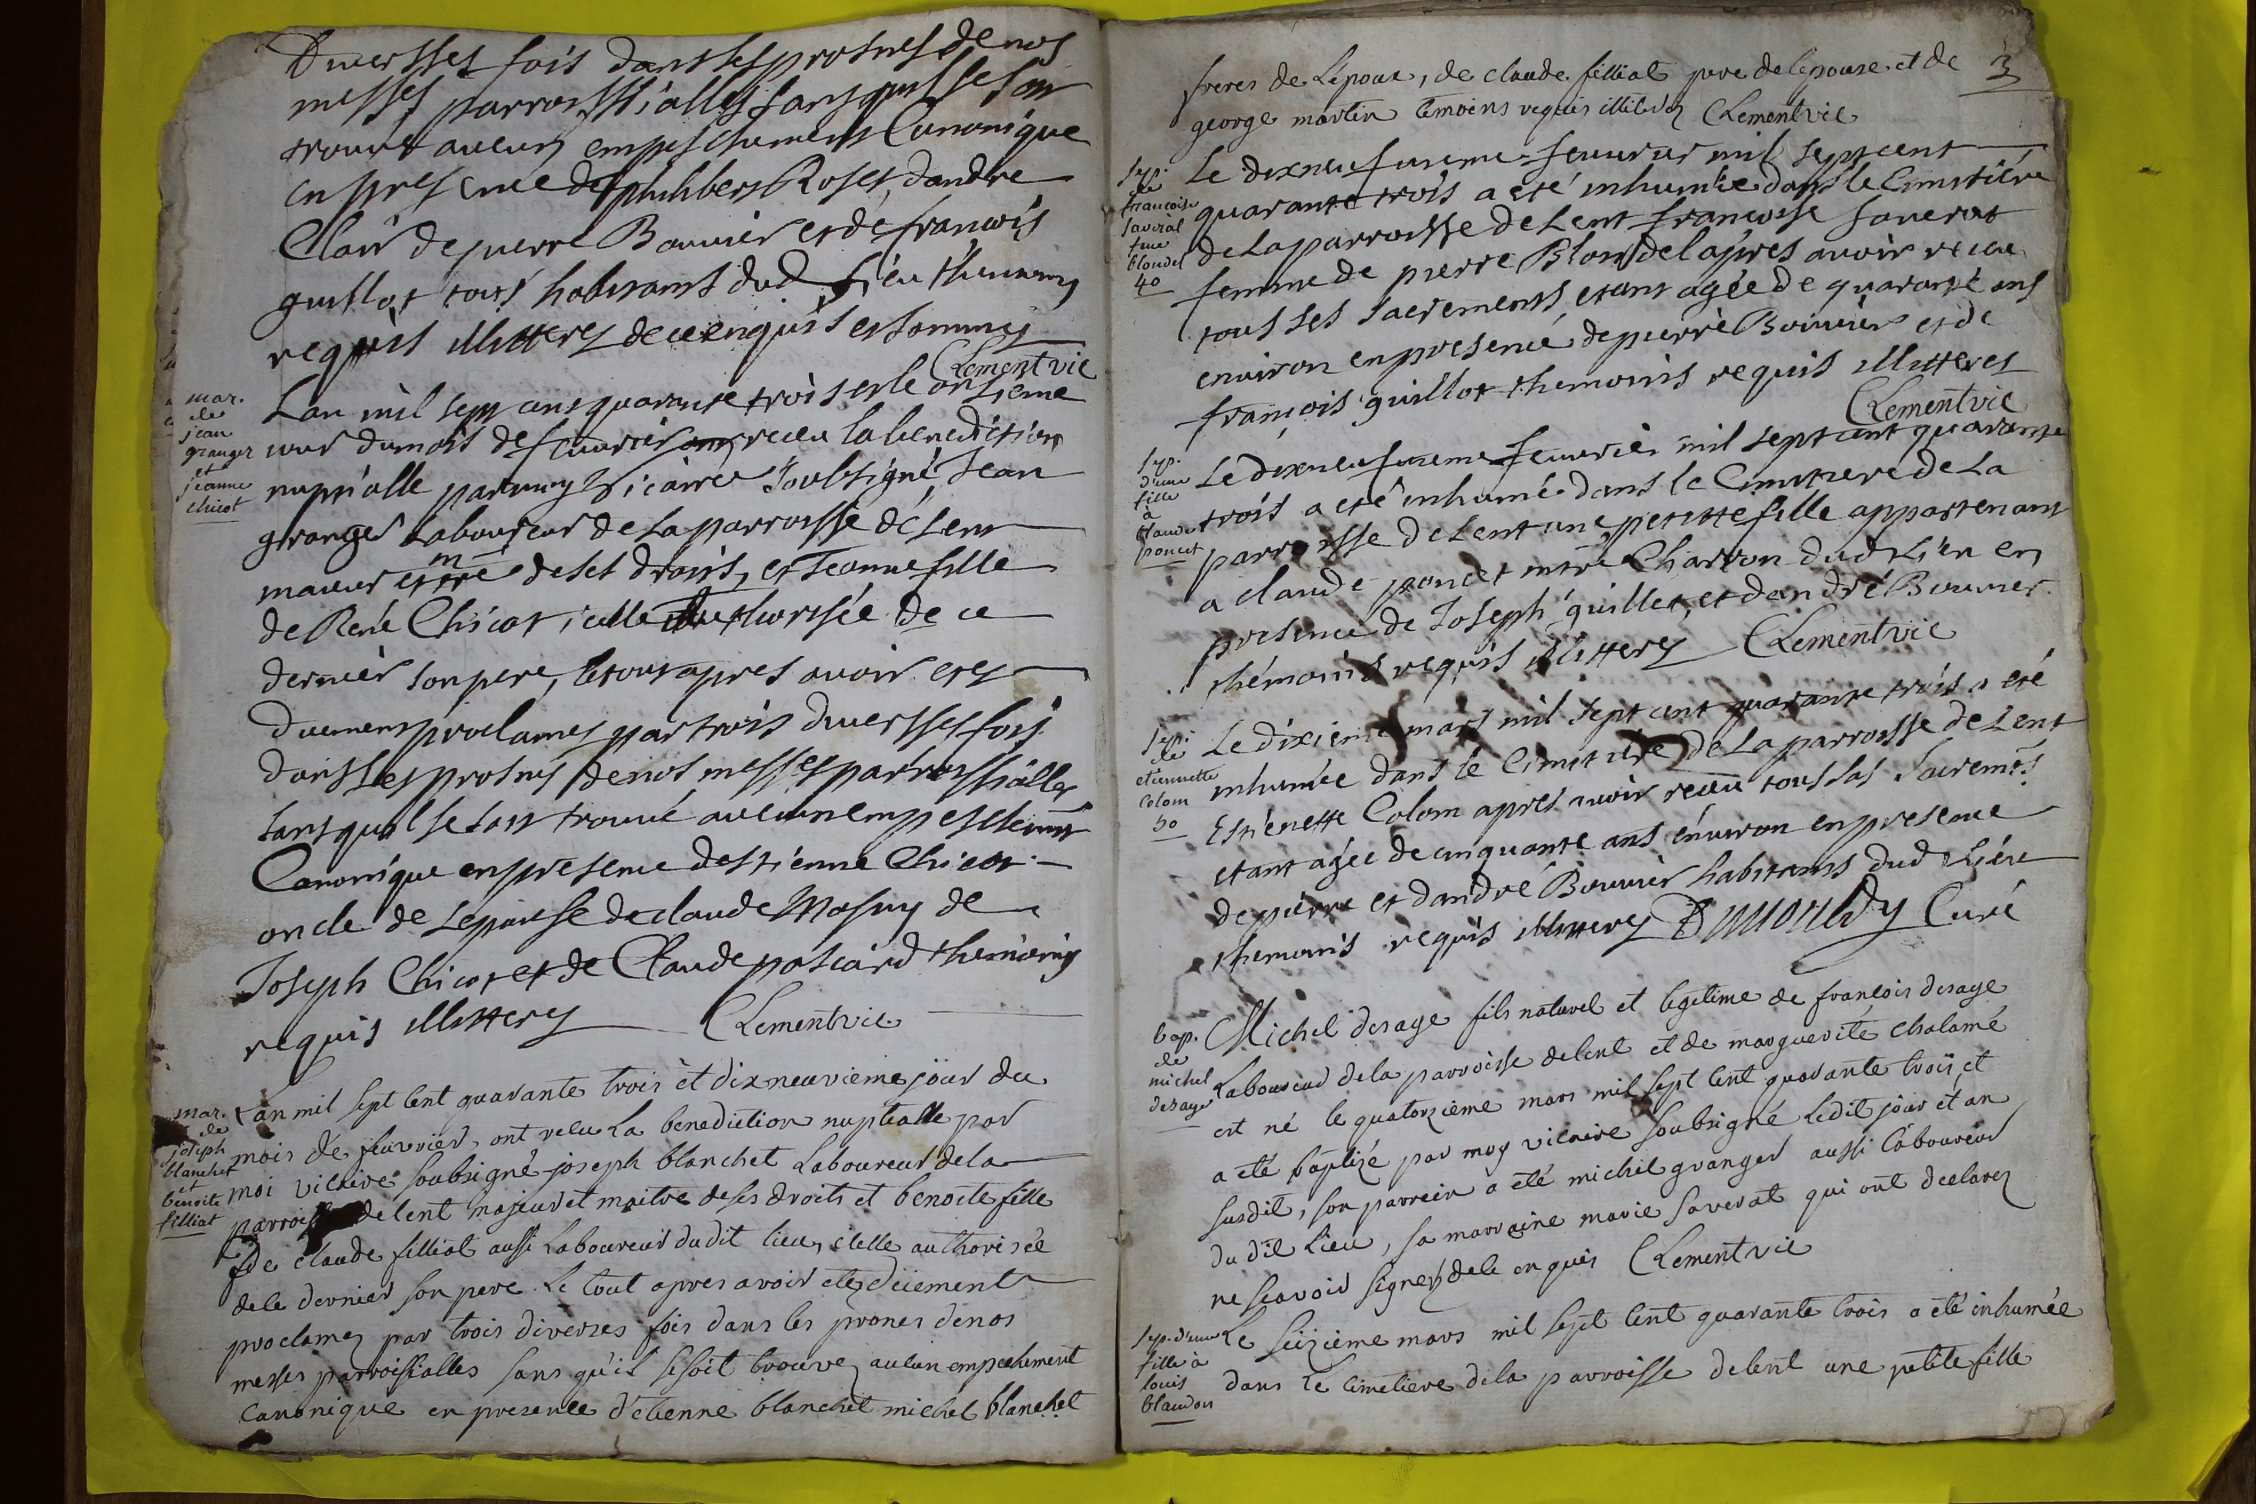 Diuersses fois dans les prosnes de nos
messes parroissialles sans quil se soit
trouué aucun empeschement Canonique
en presence de philibert Roset, dandre
Clair de pierre Bouuier et de françois
guillot tous habitants dud lieu themoins
requis illitteres de ce enquis et sommes
Clement vic
mar.
de
jean
granger
et
jeanne
chicot
Lan mil sept cens quarante trois et le onsieme
iour du mois de feurier ont receu la benediction
nuptialle par moy Vicaire soubsigné, Jean
granger Laboureur de La parroisse de Lent
maieur et mre de ses droits, et Jeanne fille
de René Chicot, icelle authorisée de ce
dernier son pere, le tout apres auoir etez
duement proclames par trois diuersses fois
dans les prosnes de nos messes parroissialles
sans quil se soit trouué aucun empeschement
Canonique en presence destienne Chicot
oncle de Lepouse de claude Mosny de
Joseph Chicot et de Claude posiard themoins
requis illitteres Clement vic.
mar.
de
joseph
blanchet
et
benoite
filliat
Lan mil sept cent quarante trois et dixneuvieme jour du
mois de feuvrier, ont recu La benediction nuptialle par
moi vicaire soubsigné joseph blanchet Laboureur de la
parroisse de lent majeur et maitre de ses droits et benoite fille
de claude filliat aussi Laboureur dudit lieu, icelle authorisée
de le dernier son pere Le tout apres avoir etez düement
proclamez par trois diverses fois dans les prones de nos
messes parroissialles sans qu'il se soit trouvez aucun empechement
canonique en presence d'etienne blanchet michel blanchet
3
freres de Lepoux, de claude filliat pere de lepouse et de
george martin temoins requis illiterez Clement vic
sep.
de
francoise
saverat
fme
blondel
40
Le dixneufuieme feuurier mil sept cent
quarante trois a eté inhumée dans le Cimitiére
de La parroisse de Lent françoise sauerat
femme de pierre Blondel apres auoir receu
tous ses sacrements, etant agée de quarante ans
enuiron en presence de pierre Bouuier et de
françois guillot themoins requis illitteres
Clement vic
sep.
d'une
fille
a
claude
poncet
Le dixneufuieme feuurier mil sept cent quarante
trois a eté inhumé dans le Cimitiere de La
parroisse de Lent une petitte fille appartenant
a claude poncet mtre Charron dud Lieu en
presence de Joseph guillet, et dandré Bouuier
thémoins requis illitteres Clement vic
sep.
de
etiennette
colom
50
Le dixieme mars mil sept cent quarante trois a eté
inhumée dans le cimitiere de La parroisse de Lent
Estienette Colom apres auoir receu tous ses Sacremts
etant agée de cinquante ans énuiron en presence
de pierre et dandré Bouuier habitants dud Lieu
themoins requis illitteres Dumouldy Curé
bap.
de
michel
desage
Michel desage fils naturel et legitime de francois desage
Laboureur de la parroisse de lent et de marguerite chalamé
est né le quatorzieme mars mil sept cent quarante trois, et
a eté baptizé par moy vicaire soubsigné Ledit jour et an
susdit, son parrein a eté michel granger aussi Laboureur
du dit Lieu, sa marraine marie saverat qui ont declarez
ne scavoir signer de ce enquis Clement vic
sep. d'une
fille à
louis
blandon
Le seizieme mars mil sept cent quarante trois a eté inhumée
dans Le cimetiere de la parroisse de lent une petite fille